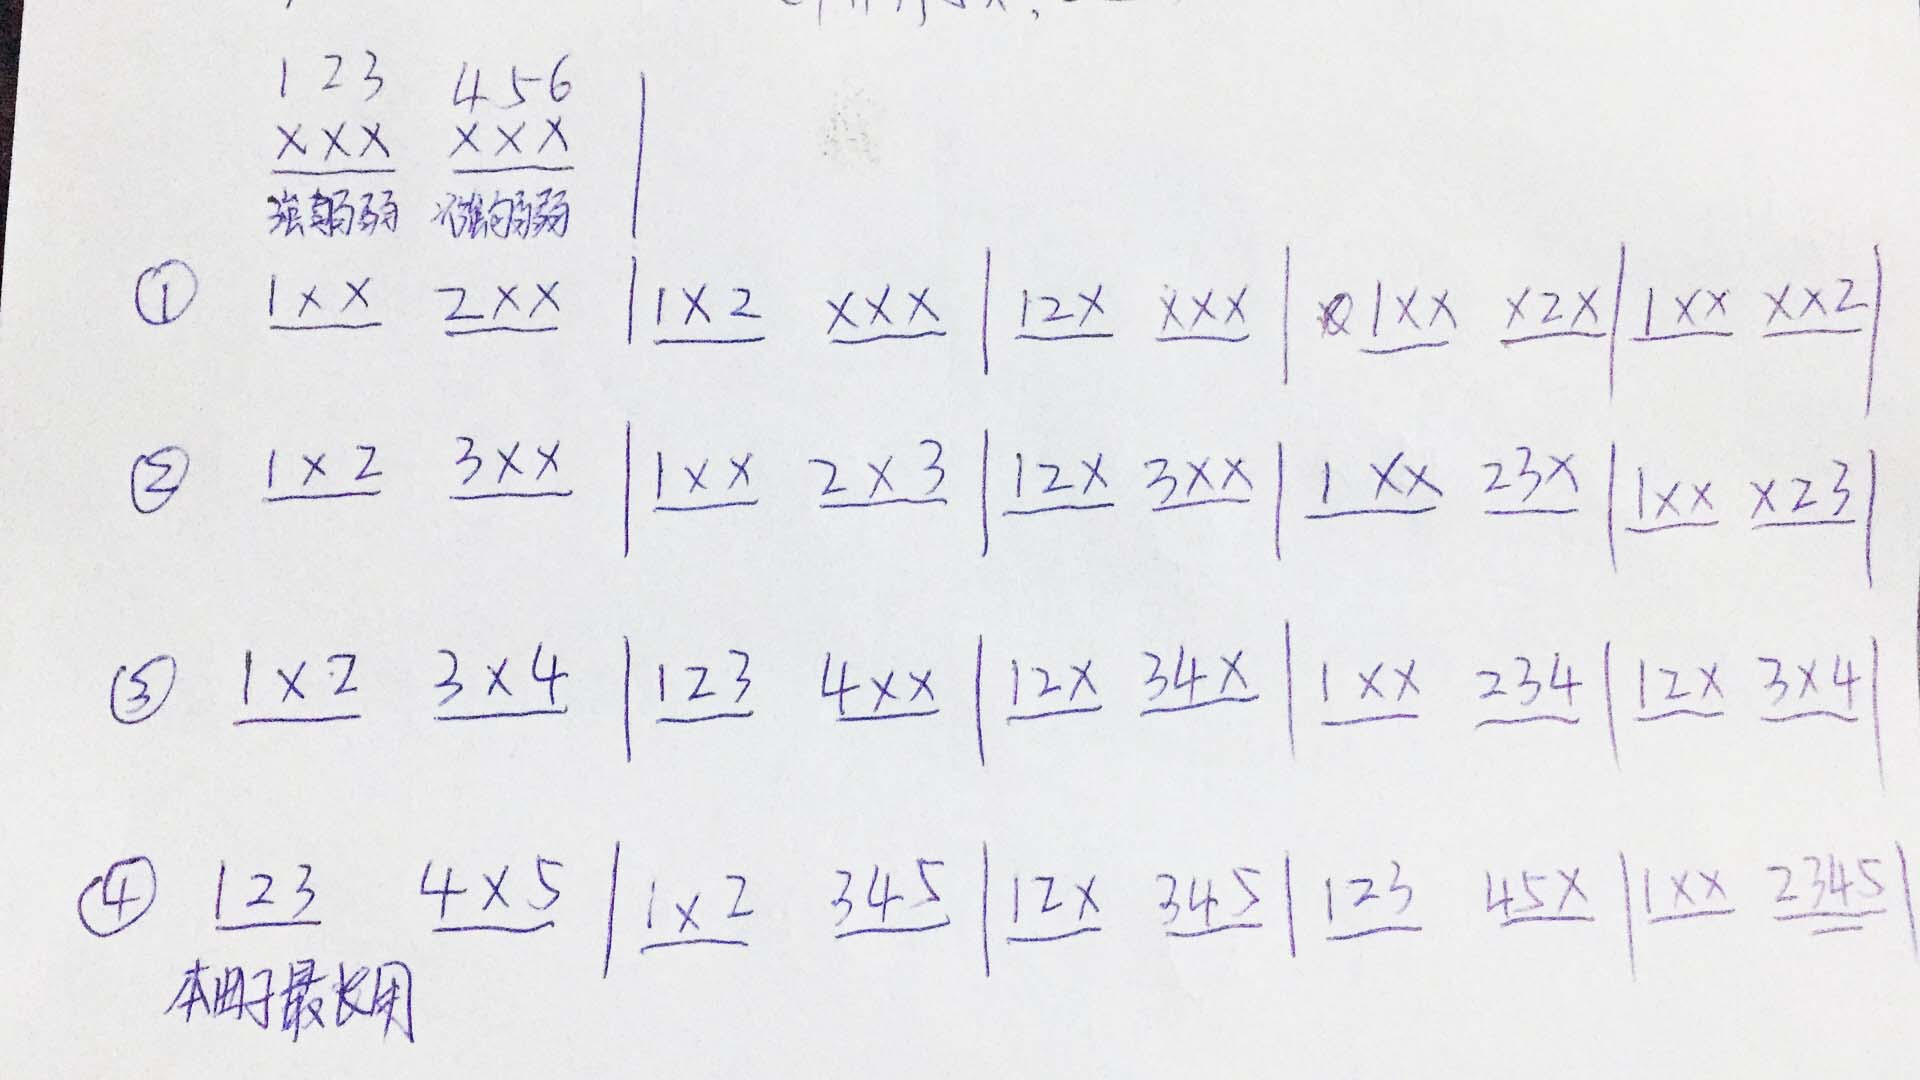 1 2 3 4 5 6
X X X X X X
强弱弱 次强弱弱
① 1 X X 2 X X | 1 X 2 X X X | 1 2 X X X X | 1 X X X 2 X | 1 X X X X 2 |
② 1 X 2 3 X X | 1 X X 2 X 3 | 1 2 X 3 X X | 1 X X 2 3 X | 1 X X X 2 3 |
③ 1 X 2 3 X 4 | 1 2 3 4 X X | 1 2 X 3 4 X | 1 X X 2 3 4 | 1 2 X 3 X 4 |
④ 1 2 3 4 X 5 | 1 X 2 3 4 5 | 1 2 X 3 4 5 | 1 2 3 4 5 X | 1 X X 2 3 4 5 |
本曲子最长用